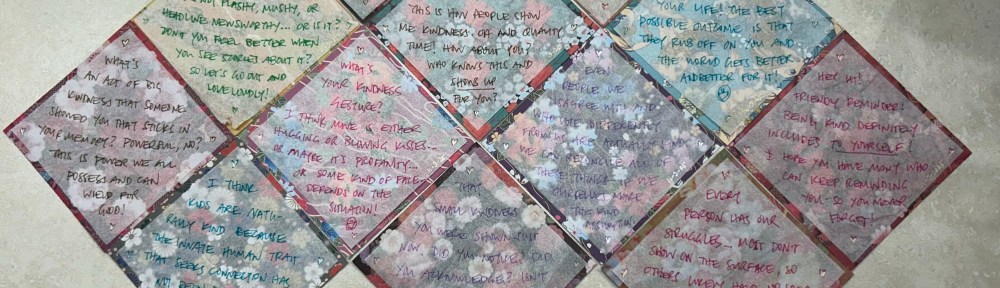 NOT FLASHY, MUSHY, OR
HEADLINE NEWSWORTHY... OR IS IT?
DON'T YOU FEEL BETTER WHEN
YOU SEE STORIES ABOUT IT?
SO LET'S GO OUT AND
LOVE LOUDLY!
THIS IS HOW PEOPLE SHOW
ME KINDNESS. OF AND QUALITY
TIME! HOW ABOUT YOU?
WHO KNOWS THIS AND
SHOWS UP
FOR YOU?
YOUR LIFE! THE BEST
POSSIBLE OUTCOME IS THAT
THEY RUB OFF ON YOU AND
THE WORLD GETS BETTER
AND BETTER FOR IT!
WHAT'S
AN ACT OF BIG
KINDNESS THAT SOMEONE
SHOWED YOU THAT STICKS IN
YOUR MEMORY? POWERFUL, NO?
THIS IS POWER WE ALL
POSSESS AND CAN
WIELD FOR
GOOD!
WHAT'S
YOUR KINDNESS
GESTURE?
I THINK MINE IS EITHER
HUGGING OR BLOWING KISSES...
OR MAYBE IT'S PROFANITY...
OR SOME KIND OF FACE...
DEPENDS ON THE
SITUATION!
EVEN
PEOPLE WE
DISAGREE WITH AND
WHO LIVE DIFFERENTLY
FROM US ARE
WE CAN RECONCILE
THESE THINGS
THE KIND
HEY, HI!
FRIENDLY REMINDER:
BEING KIND DEFINITELY
INCLUDES TO YOURSELF!
I HOPE YOU HAVE MANY WHO
CAN KEEP REMINDING
YOU SO YOU NEVER
FORGET!
I THINK
KIDS ARE NATU-
RALLY KIND BECAUSE
THE INNATE HUMAN TRAIT
THAT SEEKS CONNECTION HAS
NOT BEEN
THAT
SMALL KINDNESS
YOU WERE SHOWN JUST
NOW. DID YOU NOTICE? DID
YOU ACKNOWLEDGE? ISN'T
EVERY
PERSON HAS OUR
STRUGGLES... MOST DON'T
SHOW ON THE SURFACE, SO
OTHERS